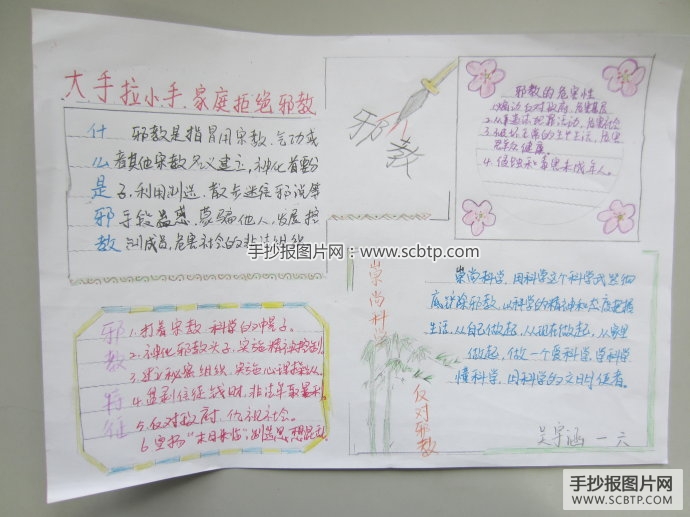 大手拉小手 家庭拒绝邪教
什么是邪教
邪教是指冒用宗教、气功或
者其他宗教名义建立,神化首要份
子,利用制造、散步迷信邪说等
手段蛊惑、蒙骗他人,发展控
制成员,危害社会的非法组织
邪教
邪教的危害性
1.煽动反对政府,危害基层
2.从事违法犯罪活动,危害社会
3.破坏正常的生产生活,危害
群众健康。
4.侵蚀和毒害未成年人。
手抄报图片网:www.scbtp.com
邪教特征
1.打着宗教、科学的幌子。
2.神化邪教头子,实施精神控制。
3.建立秘密组织,实施心理
4.盘剥信徒钱财,非法牟取暴利。
5.反对政府,仇视社会。
6.宣扬“末日来临”,制造思想混乱
崇尚科学
反对邪教
崇尚科学,用科学这个科学武器彻
底铲除邪教,以科学的精神和态度把握
生活,从自己做起,从现在做起,从家里
做起,做一个爱科学,学科学
懂科学,用科学的文明使者。
涵 一六
手抄报图片网
WWW.SCBTP.COM